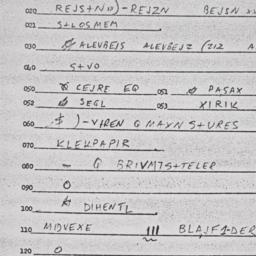 020 REJS+N))-REJZN BEJSN
021 S+LOSMEM
030 ALEVBEJS ALEVBEJZ (212 A
040 S+VO
050 CEJRE EQ 051 PASAX
052 SEGL 053 XIRIK
060 )-VAREN G MAXN S+URES
070 KLEKPAPIR
080 - G BRIVMTS+TELER
090 O
100 DIHENTL
110 MIDVEXE III BLAJF1-DER
120 O